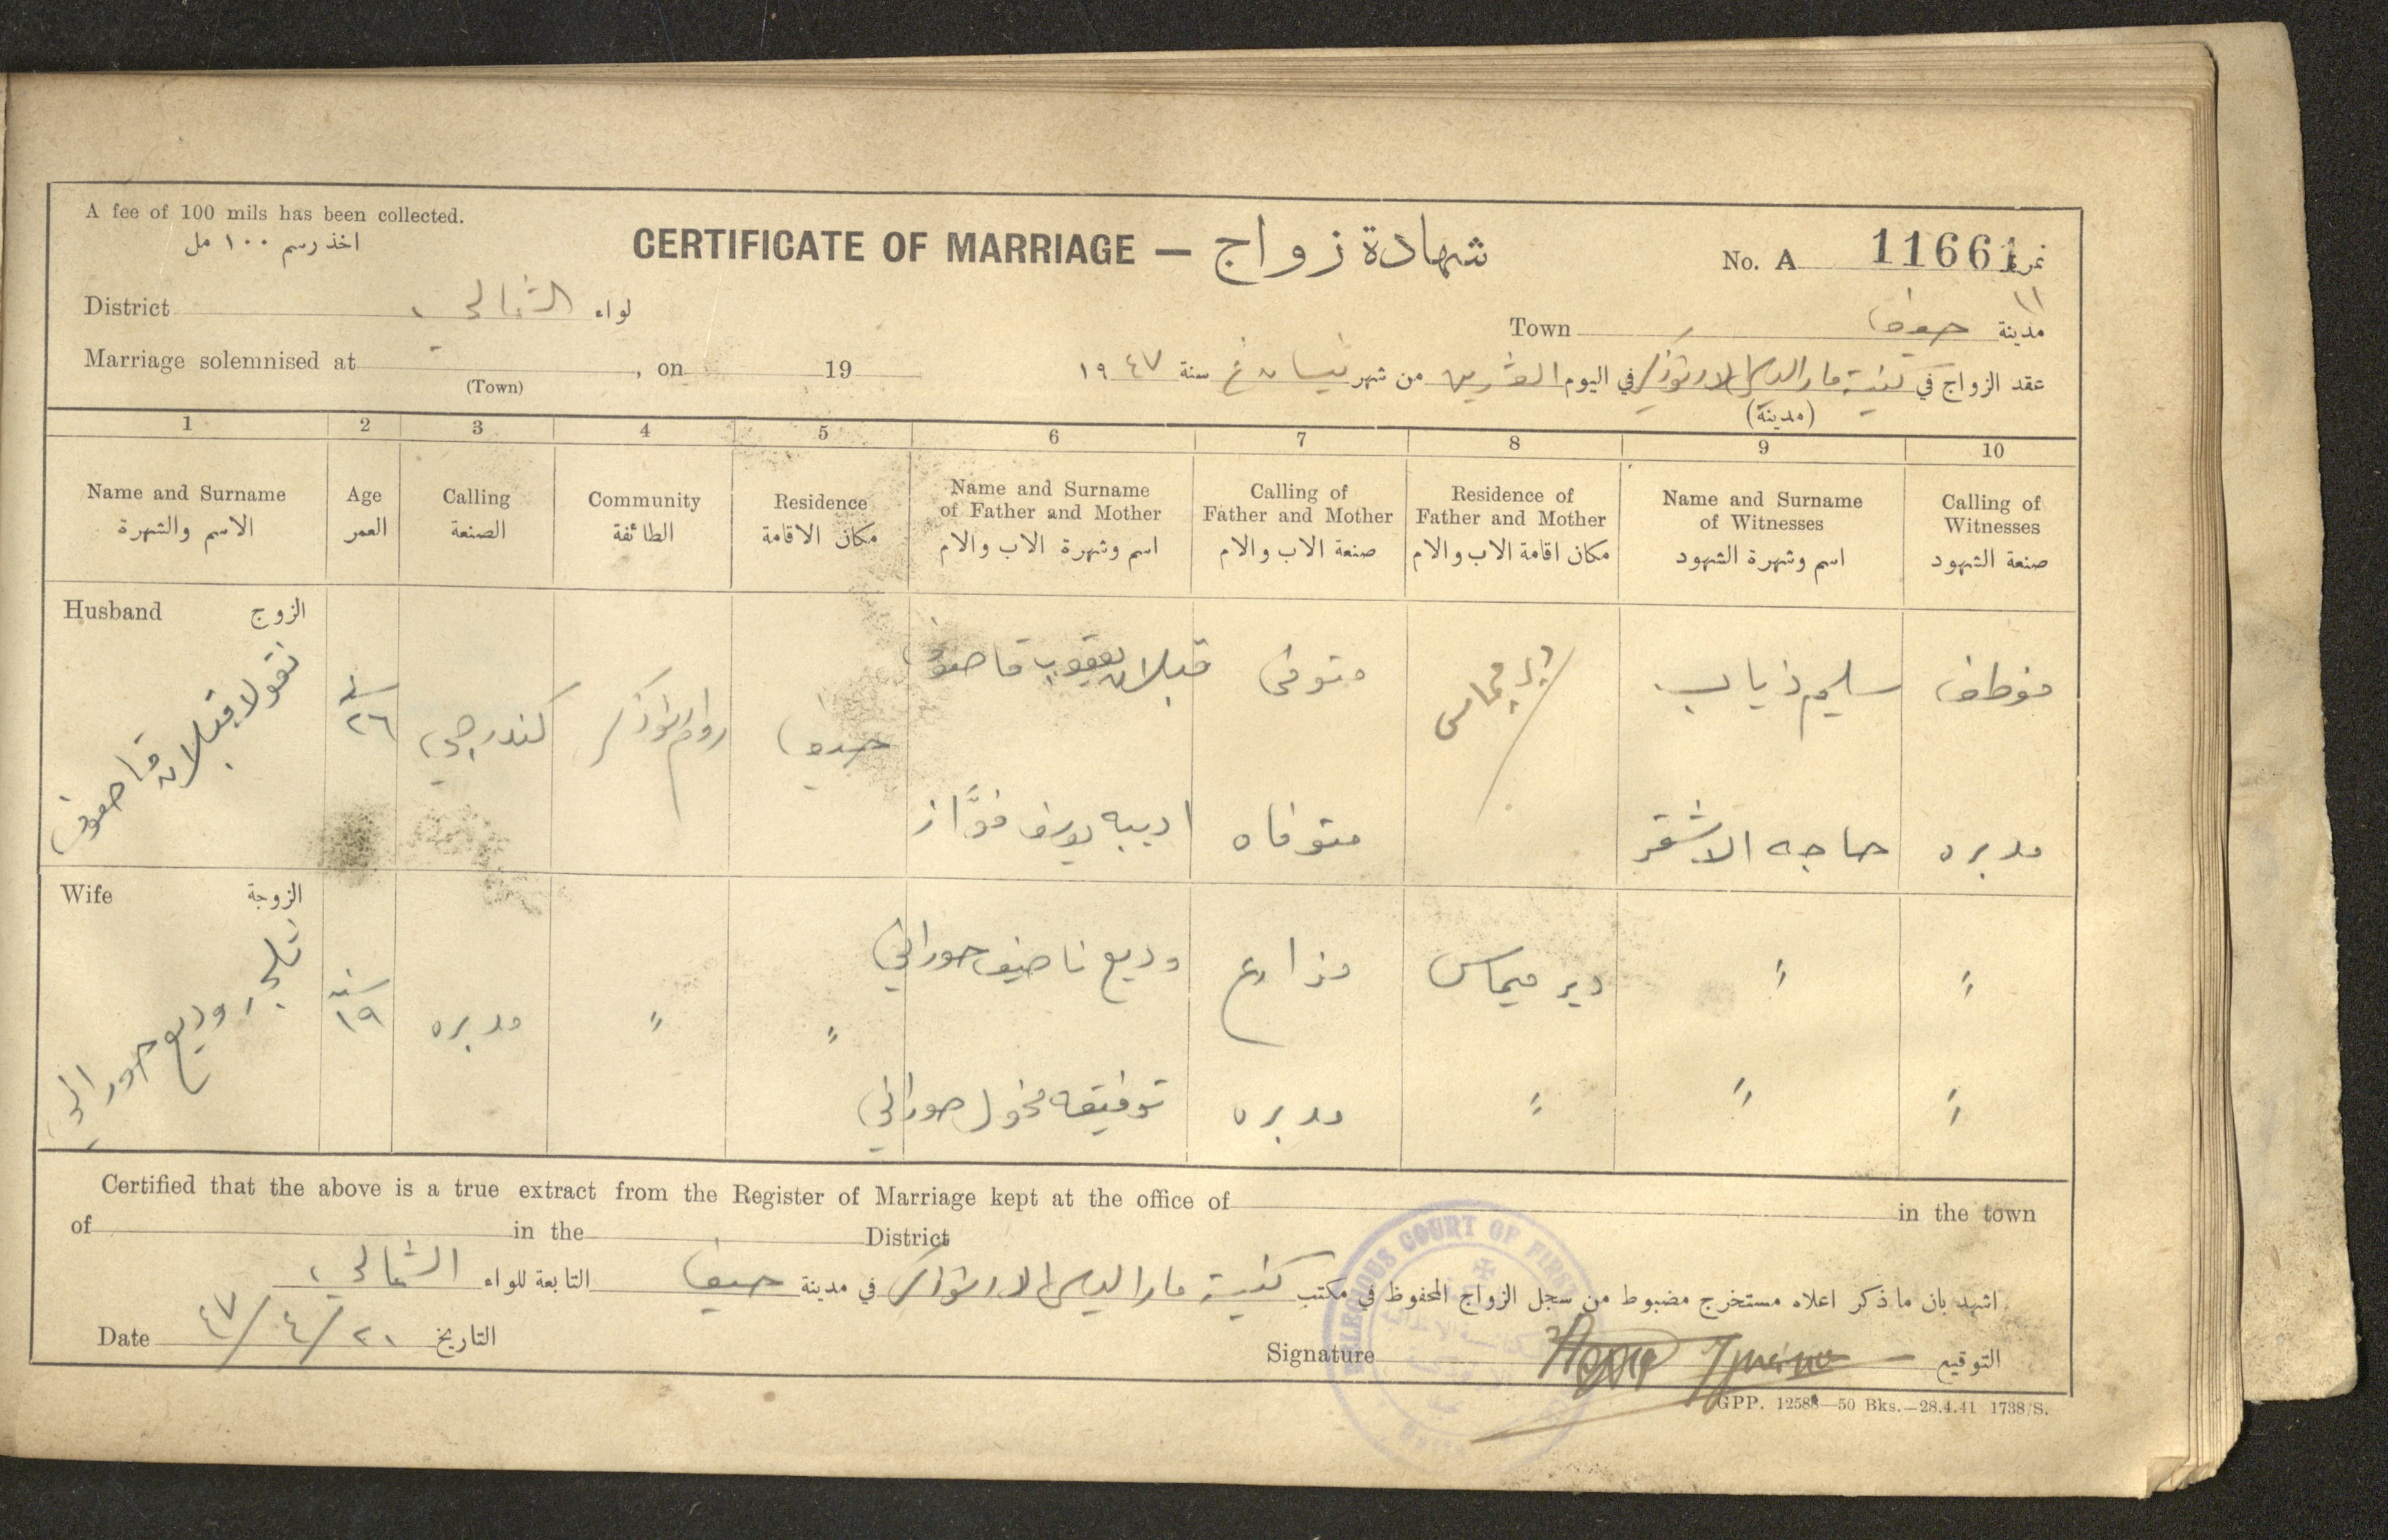 A fee of 100 mils has been collected.
اخذ رسم ١٠٠ مل
CERTIFICATE OF MARRIAGE — شهادة زواج
No. A 11661 نمرة
١١
District الشمالي لواء
Town حيفا مدينة
Marriage solemnised at , on 19
(Town)
عقد الزواج في كنيسة مار الياس الارثوذكس في اليوم العشرين من شهر نيسان سنة ١٩٤٧
(مدينة)
1 2 3 4 5 6 7 8 9 10
Name and Surname
الاسم والشهرة
Age
العمر
Calling
الصنعة
Community
الطائفة
Residence
مكان الاقامة
Name and Surname
of Father and Mother
اسم وشهرة الاب والام
Calling of
Father and Mother
صنعة الاب والام
Residence of
Father and Mother
مكان اقامة الاب والام
Name and Surname
of Witnesses
اسم وشهرة الشهود
Calling of
Witnesses
صنعة الشهود
Husband الزوج
نقولا قبلان قاصوف
سنة
٢٦
كندرجي
روم ارثوذكس
حيفا
قبلان يعقوب قاصوف
متوفي
دير ميماس
سليم ذياب
موظف
اديبه يوسف فوَّاز
متوفاه
الاشقر
مدبره
Wife الزوجة
وديع حوراني
سنة
١٩
مدبره
"
"
وديع ناصيف حوراني
مزارع
دير ميماس
"
"
توفيقه مخول حوراني
مدبره
"
"
"
Certified that the above is a true extract from the Register of Marriage kept at the office of in the town
of in the District
اشهد بان ما ذكر اعلاه مستخرج مضبوط من سجل الزواج المحفوظ في مكتب كنيسة مار الياس الارثوذكس في مدينة حيفا التابعة للواء الشمالي
Date ٢١/٤/٤٧ التاريخ
Signature التوقيع
RELIGIOUS COURT OF FIRST
GPP. 12588—50 Bks.—28.4.41 1738/S.